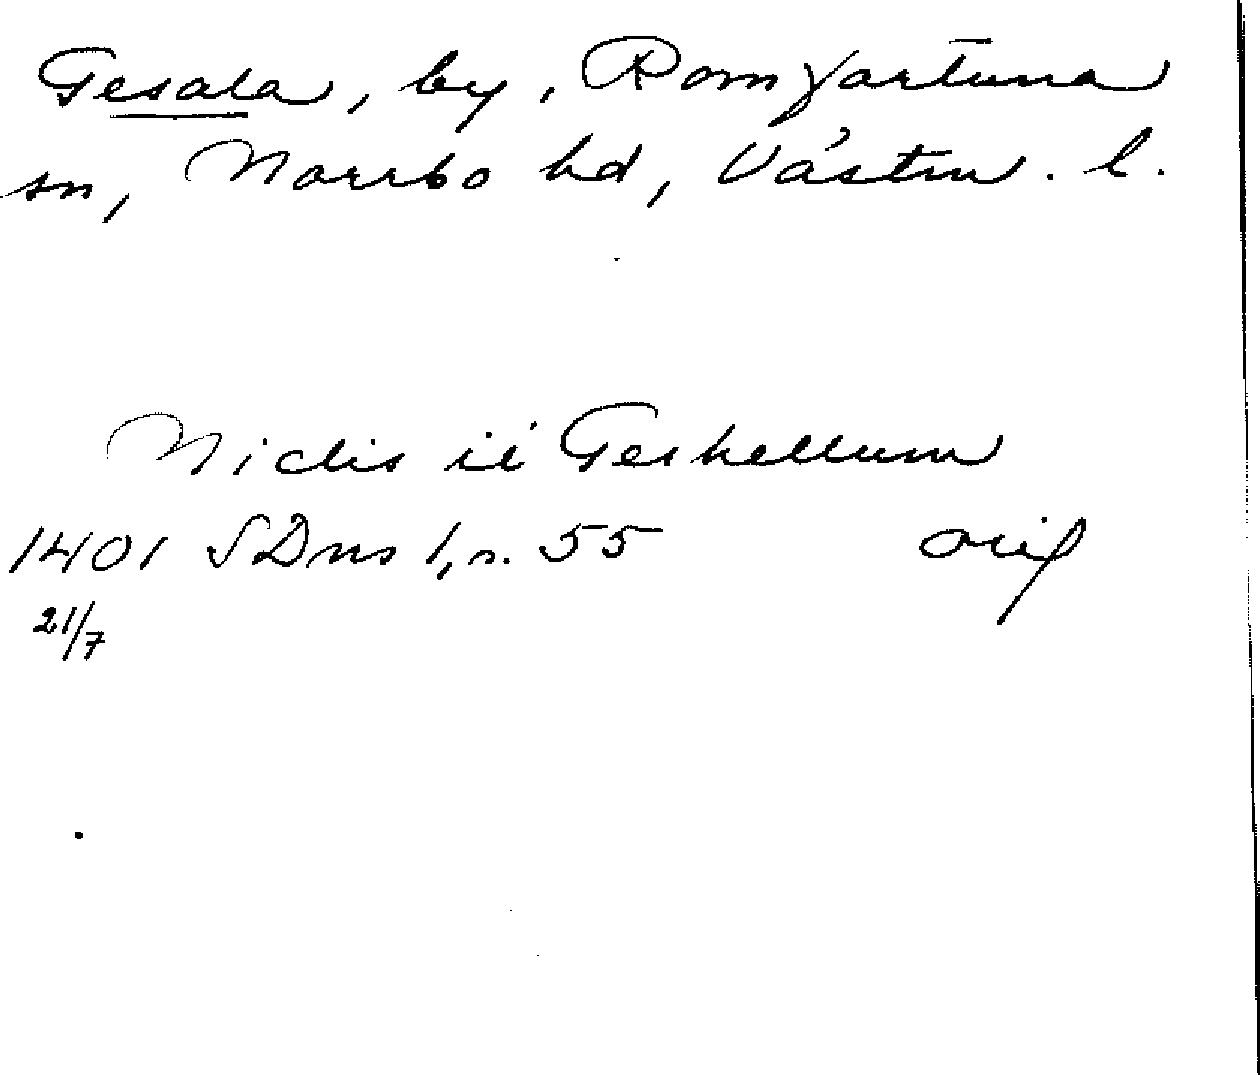 Gesala, by, Romfartuna
sn, Norrbo hd, Västm. l.
Niclis i Geshellum
1401 SDns 1, s. 55 orig
21/7